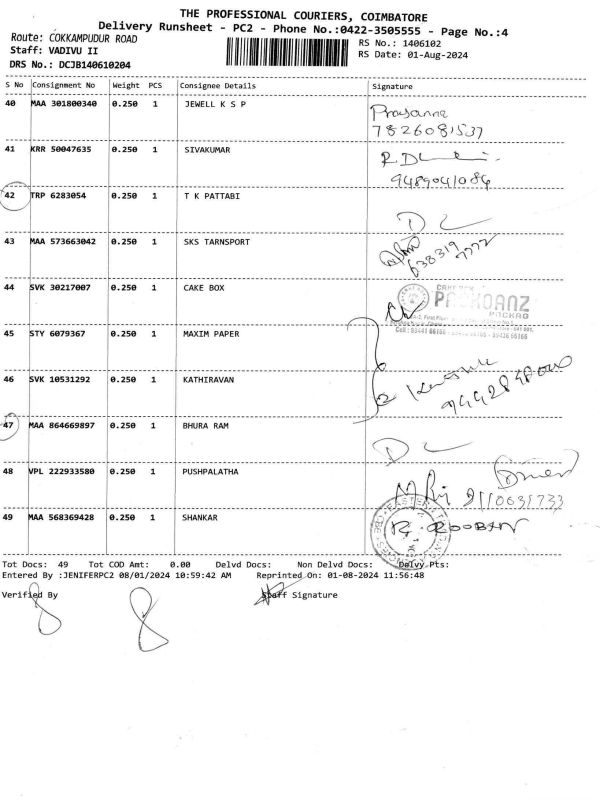 THE PROFESSIONAL COURIERS, COIMBATORE
Delivery Runsheet - PC2 - Phone No.:0422-3505555 - Page No.:4
Route: COKKAMPUDUR ROAD
Staff: VADIVU II
DRS No.: DCJB140610204
RS No.: 1406102
RS Date: 01-Aug-2024
S No Consignment No Weight PCS Consignee Details Signature
40 MAA 301800340 0.250 1 JEWELL K S P Prasanna
7826081537
41 KRR 50047635 0.250 1 SIVAKUMAR
9489041084
42 TRP 6283054 0.250 1 T K PATTABI
43 MAA 573663042 0.250 1 SKS TARNSPORT
638319 7772
44 SVK 30217007 0.250 1 CAKE BOX
PACKOANZ
45 STY 6079367 0.250 1 MAXIM PAPER
46 SVK 10531292 0.250 1 KATHIRAVAN
47 MAA 864669897 0.250 1 BHURA RAM
48 VPL 222933580 0.250 1 PUSHPALATHA
49 MAA 568369428 0.250 1 SHANKAR R. ROOBAN
Tot Docs: 49 Tot COD Amt: 0.00 Delvd Docs: Non Delvd Docs: Delvy Pts:
Entered By :JENIFERPC2 08/01/2024 10:59:42 AM Reprinted On: 01-08-2024 11:56:48
Verified By Staff Signature